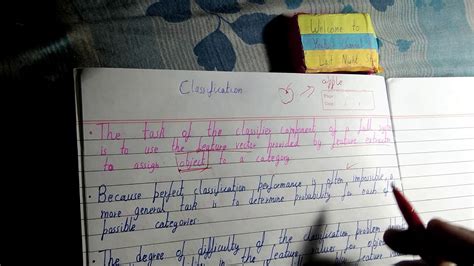 Welcome to
apple
Classification
Page
Date
• The task of the classifier component of a full
is to use the feature vector provided by feature
to assign object to a category.
• Because perfect classification performance is often impossible, a
more general task is to determine probability for each of
possible categories.
The degree of difficulty of the classification problem
in the feature values for